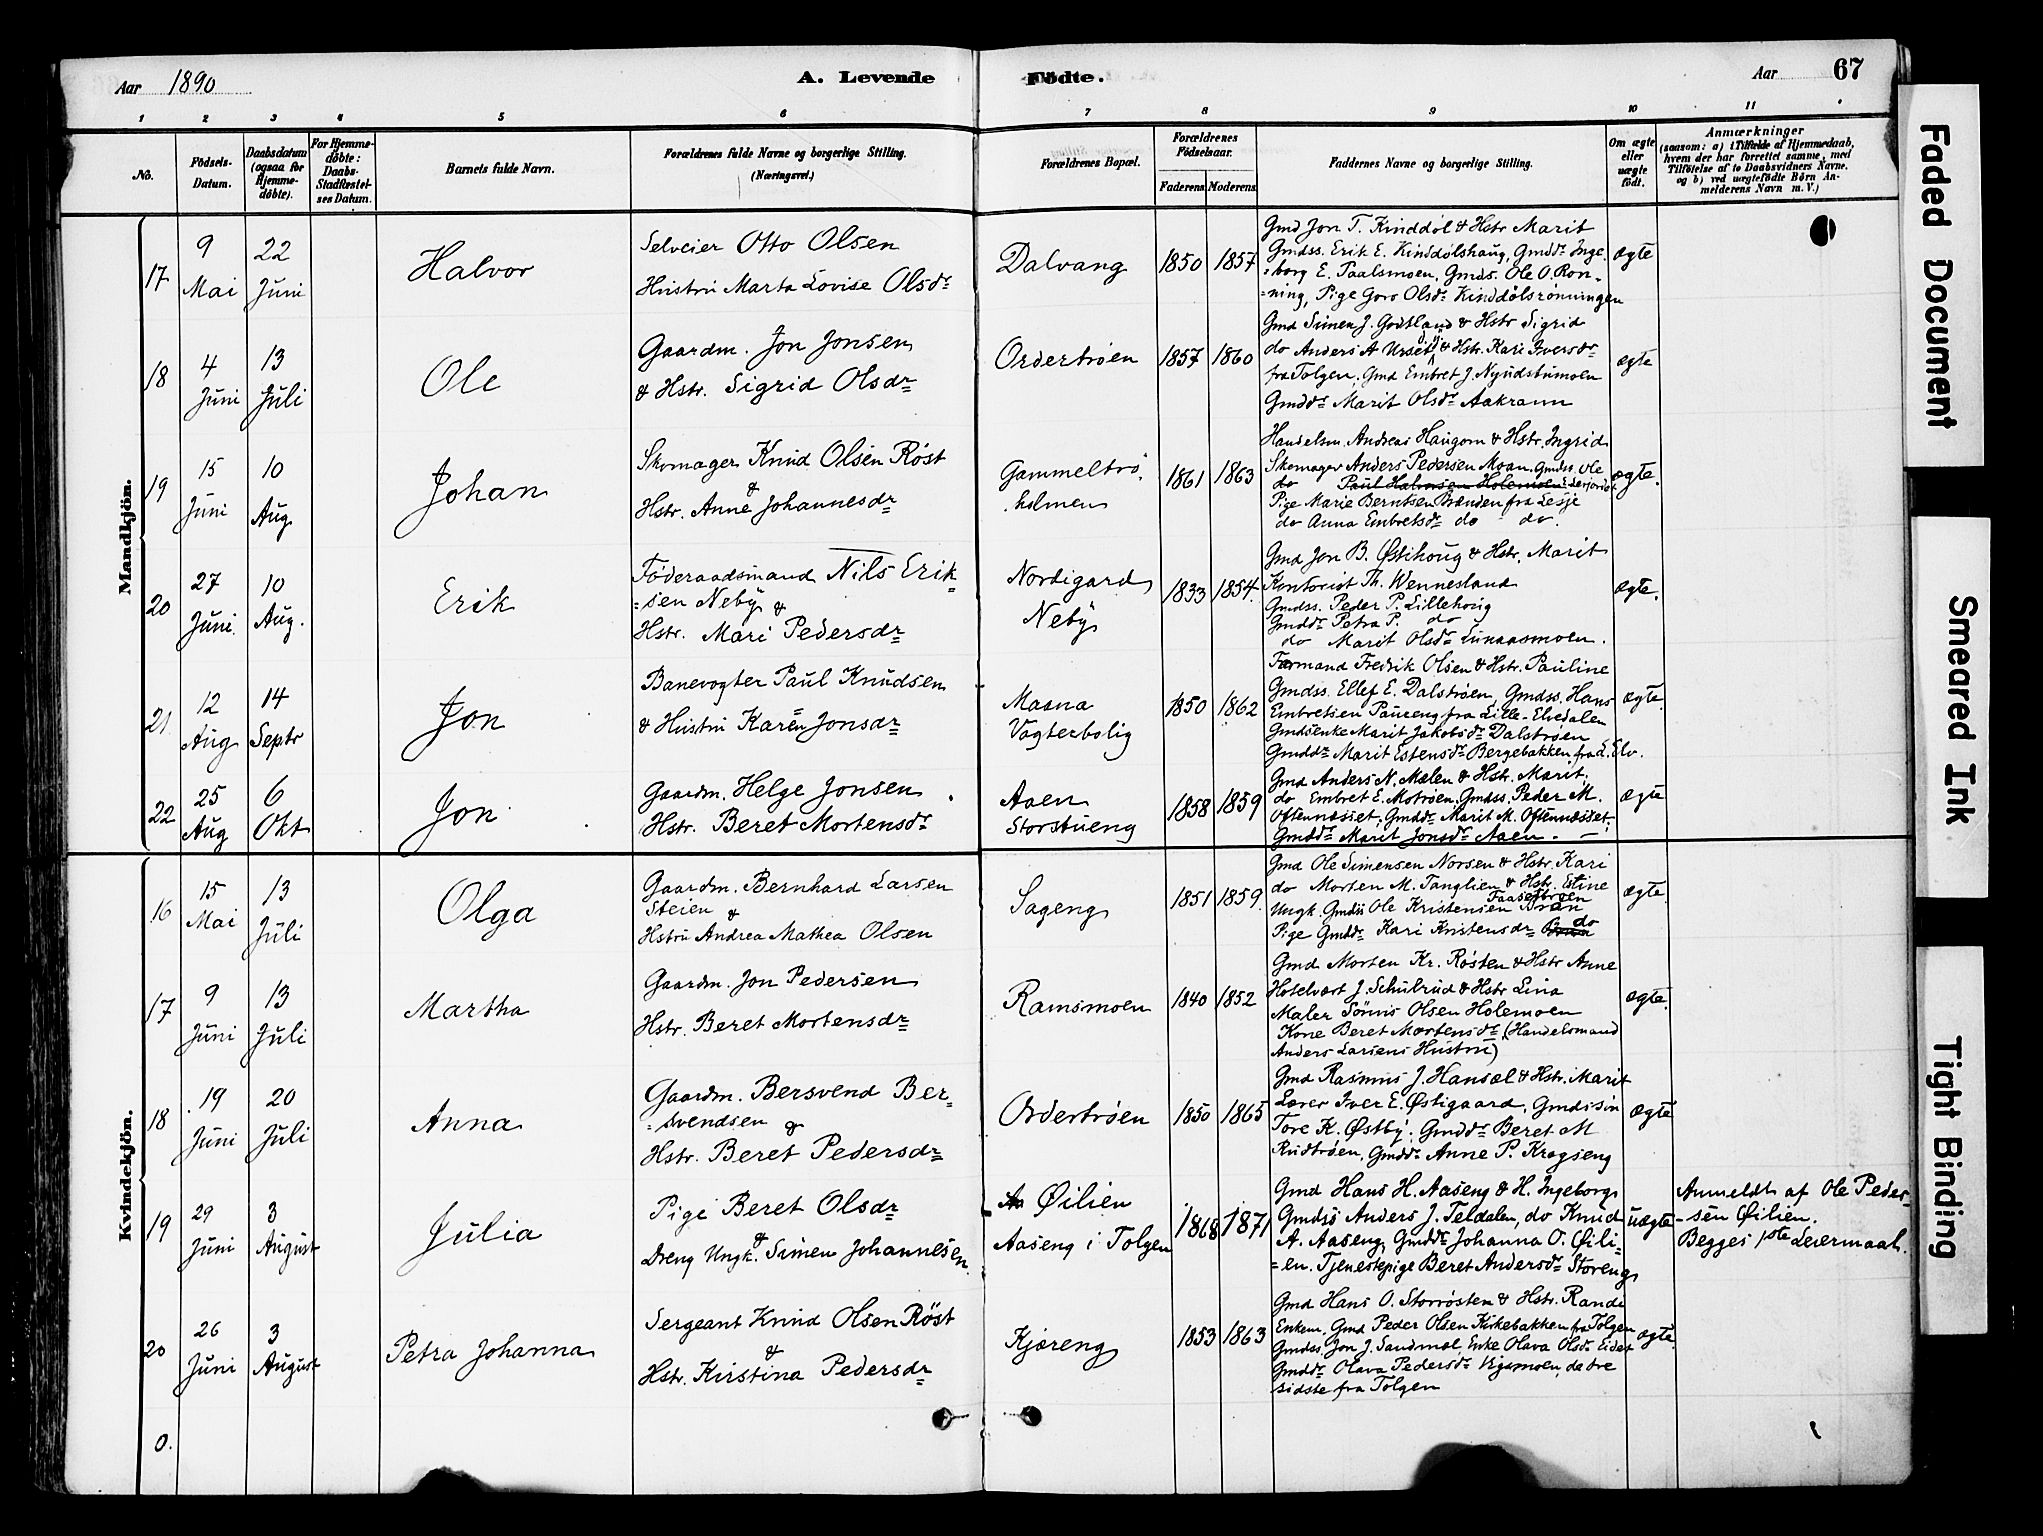 Aar 1890
A. Levende Födte.
Aar 67
1 2 3 4 5 6 7 8 9 10 11
No.
Födsels-Datum.
Daabsdatum (ogsaa for Hjemmedöbte).
For Hjemmedöbte: Daabs-Stadfæstelses Datum.
Barnets fulde Navn.
Forældrenes fulde Navne og borgerlige Stilling.
(Næringsvei.)
Forældrenes Bopæl.
Forældrenes Födselsaar.
Faderens Moderens
Faddernes Navne og borgerlige Stilling.
Om ægte eller uægte født.
Anmærkninger
(saasom: a) i Tilfælde af Hjemmedaab, hvem der har forrettet samme, med Tilföielse af to Daabsvidners Navne. og b) ved uægtefödte Börn Anmelderens Navn m. V.)
Mandkjön.
17
9 Mai
22 Juni
Halvor
Selveier Otto Olsen
Hustru Marta Lovise Olsdr
Dalvang
1850 1857
Gmd Jon T. Kinddöl & Hstr Marit
Gmdss. Erik E. Kinddölshaug, Gmddr Inge-
=borg E. Paalsmoen, Gmds. Ole O. Rön-
=ning, Pige Goro Olsdr Kinddölsrönningen
ægte
18
4 Juni
13 Juli
Ole
Gaardm. Jon Jonsen
& Hstr. Sigrid Olsdr
Ordertrøen
1857 1860
Gmd Simen J. Godtland & Hstr Sigrid
do Anders A Urset & Hstr. Kari Iversdr
fra Tolgen, Gmd Embret J. Nyudstumoen
Gmddr Marit Olsdr Aakrann
ægte
19
15 Juni
10 Aug
Johan
Skomager Knud Olsen Röst
&
Hstr. Anne Johannesdr
Gammeltrø
holmen
1861 1863
Handelsm. Andreas Haugom & Hstr. Ingrid
Skomager Anders Pedersen Moan, Gmdss. Ole
do Paul Halvorsen Holemoen
Pige Marie Berntsen Brænden fra Lesje
do Anna Embretsdr do do.
ægte.
20
27 Juni
10 Aug.
Erik
Föderaadsmand Nils Erik-
=sen Neby &
Hstr. Mari Pedersdr
Nordigard
Neby
1833 1854
Gmd Jon B. Østihoug & Hstr. Marit
Kontorist Th. Wennesland
Gmdss. Peder P. Lillehoug
Gmddr Petra P. do
do Marit Olsdr Lunaasmoen.
ægte.
21
12 Aug
14 Septr
Jon
Banevogter Paul Knudsen
& Hustru Karen Jonsdr
Maana
Vogterbolig
1850 1862
Formand Fredrik Olsen & Hstr. Pauline
Gmdss. Ellef E. Dalstrøen, Gmdss. Hans
Embretsen Paureng fra Lille-Elvedalen
Gmdsenke Marit Jakobsdr Dalstrøen
Gmddr Marit Estensdr Bergebakken fra L. Elv.
ægte
22
25 Aug
6 Okt
Jon
Gaardm. Helge Jonsen
Hstr. Beret Mortensdr
Aaen
Storstueng
1858 1859
Gmd Anders N. Mælen & Hstr. Marit,
do Embret E. Motrøen, Gmdss. Peder M.
Oftennæsset, Gmddr. Marit M. Oftennæsset,
Gmddr Marit Jonsdr Aaen. —
ægte
Kvindekjön.
16
15 Mai
13 Juli
Olga
Gaardm. Bernhard Larsen
Steien &
Hstru Andrea Mathea Olsen
Sageng
1851 1859
Gmd Ole Simensen Norsen & Hstr. Kari
do Morten M. Tanglien & Hstr. Estine
Ungk. Gmds Ole Kristensen
Pige Gmddr Kari Kristensdr do
ægte.
17
9 Juni
13 Juli
Martha
Gaardm. Jon Pedersen
Hstr. Beret Mortensdr
Ramsmoen
1840 1852
Gmd Morten Kr. Røsten & Hstr Anne
Hotelvært J. Schulrud & Hstr Lina
Maler Tönnes Olsen Holemoen
Kone Beret Mortensdr (Handelsmand
Anders Larsens Hustru)
ægte.
18
19 Juni
20 Juli
Anna
Gaardm. Bersvend Ber-
=svendsen &
Hstr. Beret Pedersdr
Ordertrøen
1850 1865
Gmd Rasmus J. Hansæl & Hstr. Marit
Lærer Iver E. Østigaard, Gmdssøn
Tore K. Østby, Gmddr Beret M
Rudtrøen, Gmddr. Anne P. Krogseng
ægte
19
29 Juni
3 August
Julia
Pige Beret Olsdr
&
Dreng Ungk. Simen Johannesen
Øilien
Aaseng i Tolgen
1868 1871
Gmd Hans H. Aaseng & H. Ingeborg
Gmdsö Anders J. Teldalen, do Knud
A. Aaseng, Gmddr Johanna O. Øili-
=en. Tjenestepige Beret Andersdr Storeng
uægte
Anmeldt af Ole Peder-
-sen Øilien.
Begges 1ste Leiermaal.
20
26 Juni
3 August
Petra Johanna
Sergeant Knud Olsen Röst
&
Hstr. Kirstina Pedersdr
Kjæreng
1853 1863
Gmd Hans O. Storrösten & Hstr. Randi
Enkem. Gmd Peder Olsen Kirkebakken fra Tolgen
Gmdss. Jon J. Sandmæl, Enke Olava Olsdr Eidet
Gmddr. Olava Pedersdr Vigsmoen, de tre
sidste fra Tolgen
ægte.
0.
Faded Document
Smeared Ink
Tight Binding